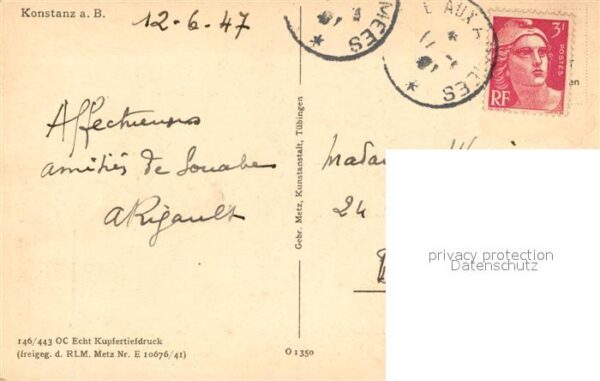 Konstanz a. B.
12-6-47
Affectueuses
amitiés de Souabe
ARigault
146/443 OC Echt Kupfertiefdruck
(freigeg. d. RLM. Metz Nr. E 10676/41)
O 1350
Gebr. Metz, Kunstanstalt, Tübingen
MEES
AUX ARMEES
3F
POSTES
RF
en
Mada
24
privacy protection
Datenschutz